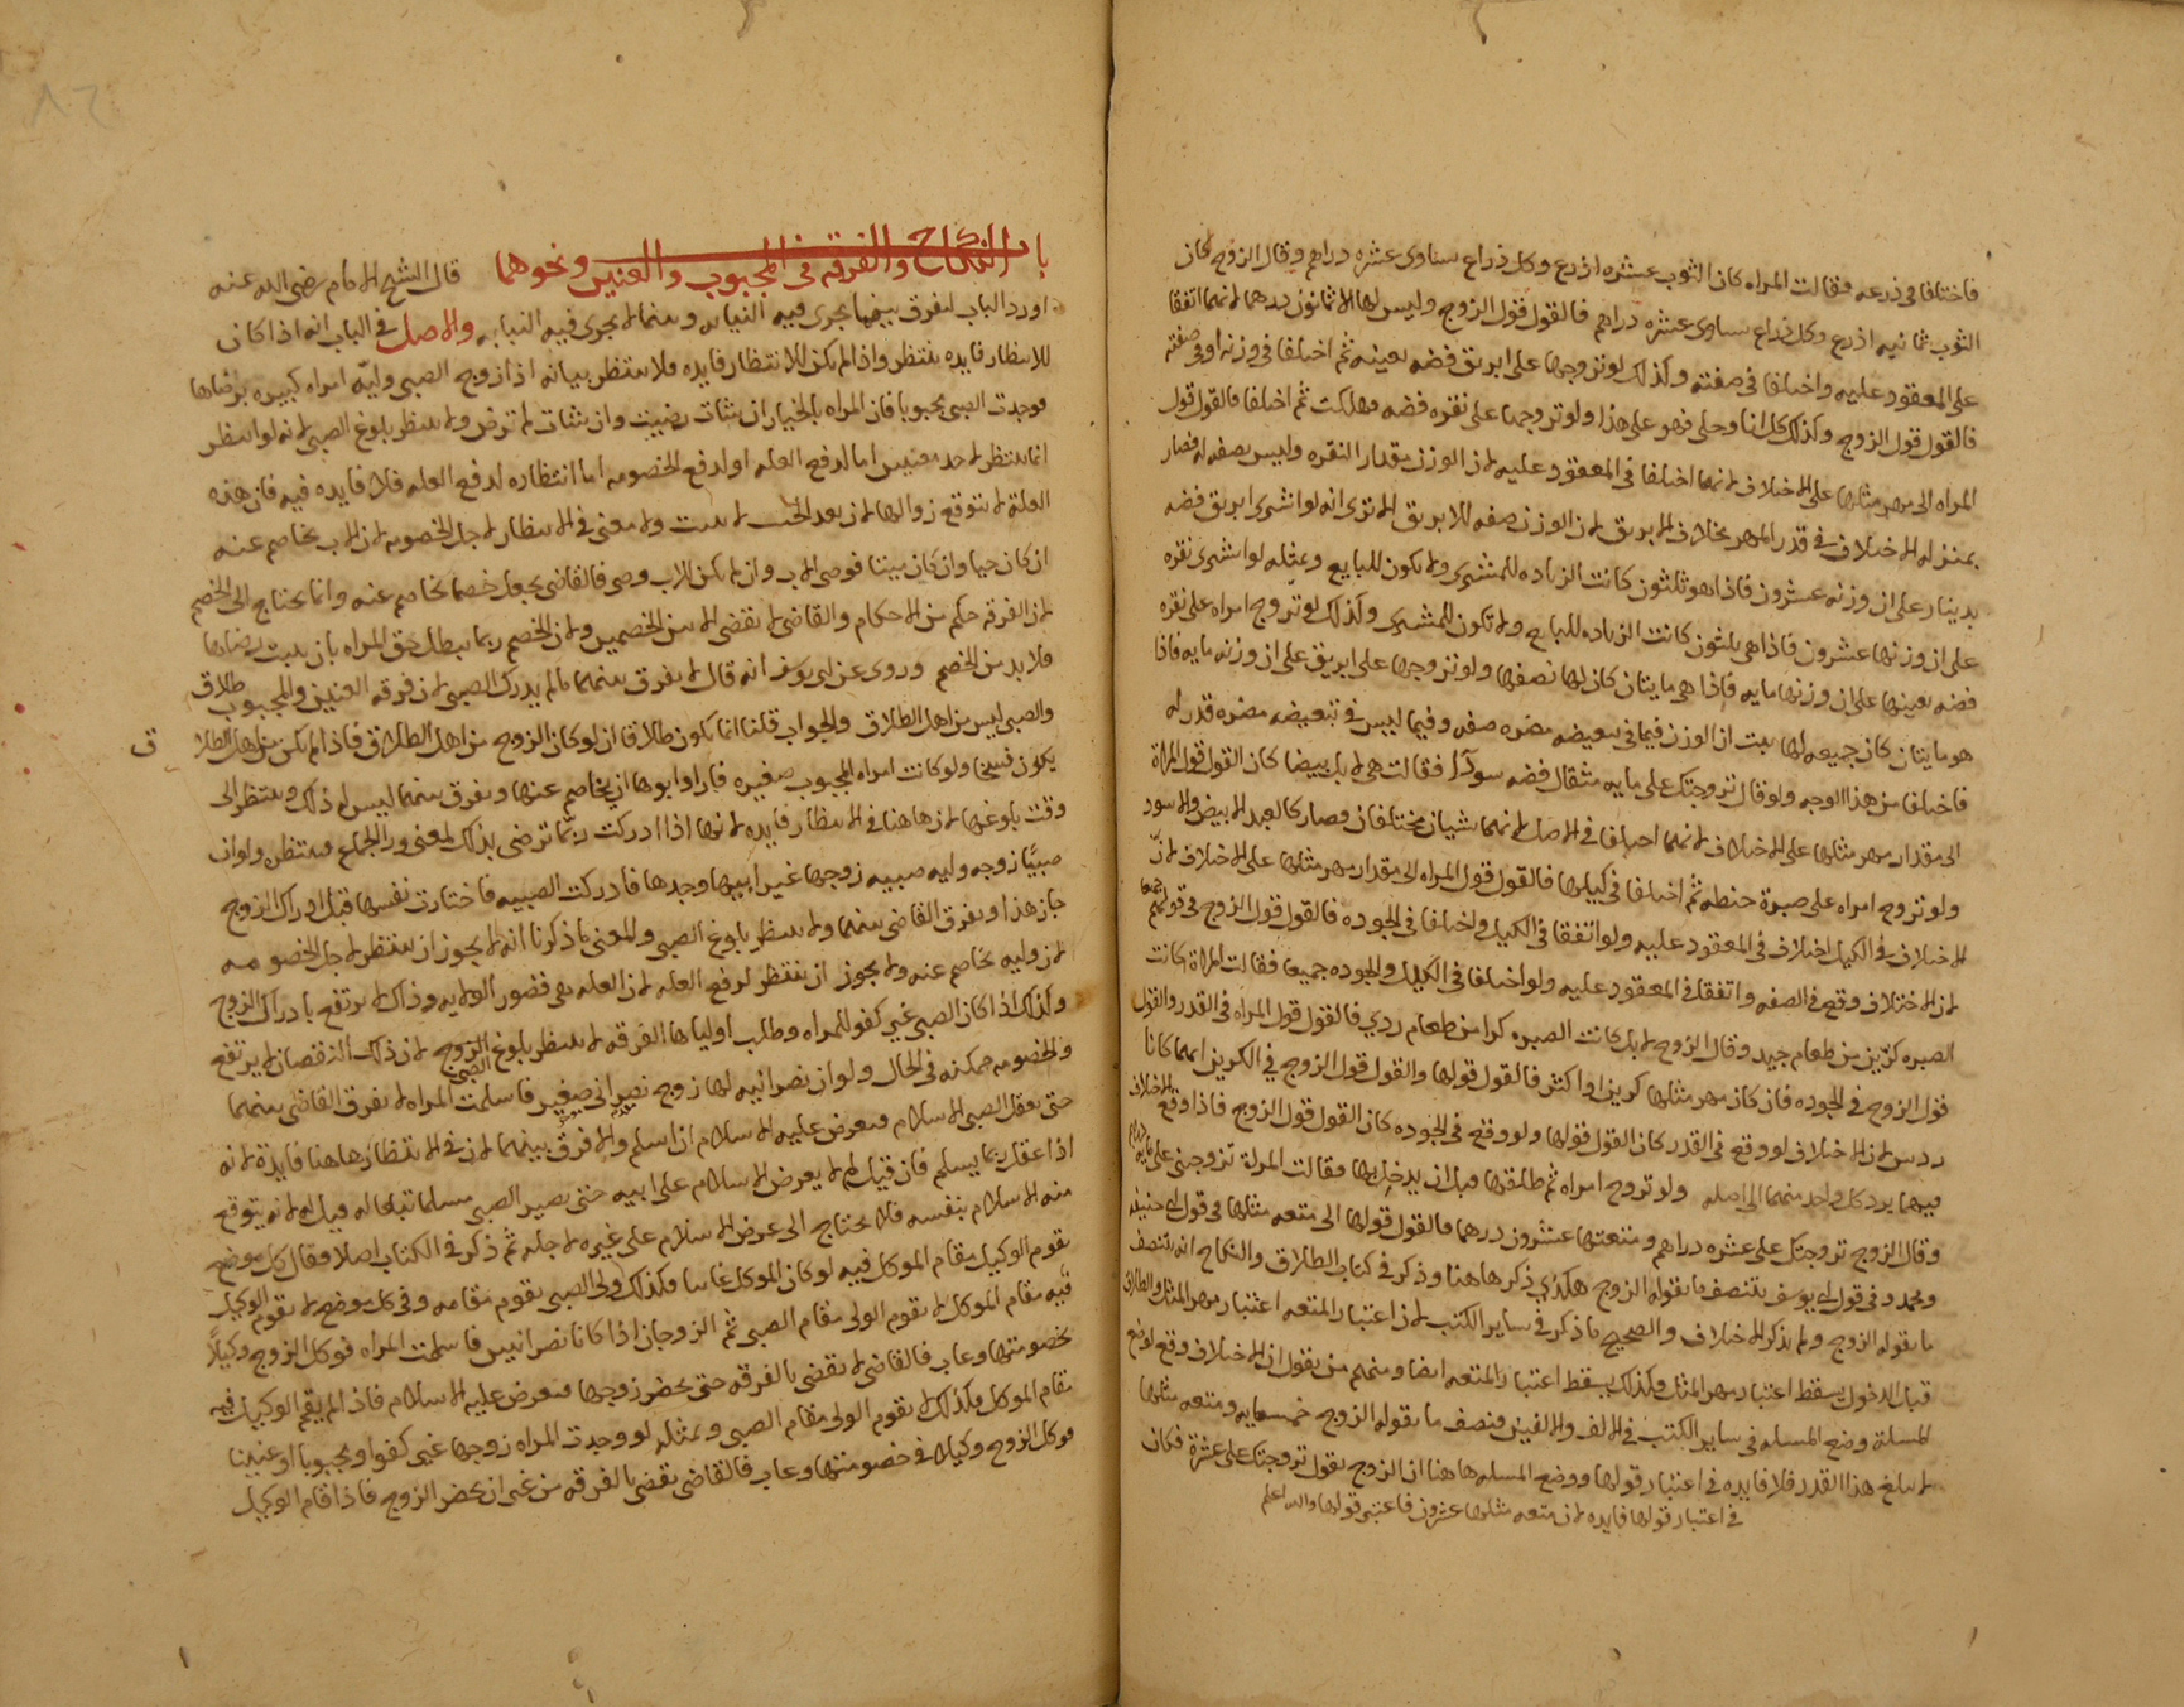 فاختلفا فى ذرعه فقالت المراه كان الثوب عشره اذرع وكل ذراع يساوى عشره دراهم وقال الزوج كان
الثوب ثمانيه اذرع وكل ذراع يساوى عشره دراهم فالقول قول الزوج وليس لها الا ثمانون درهما لانهما اتفقا
على المعقود عليه واختلفا فى صفته وكذلك لو تزوجها على ابريق فضه بعينه ثم اختلفا فى وزنه او فى صفته
فالقول قول الزوج وكذلك كل انا وحلى فهو على هذا ولو تزوجها على نقره فضه فهلكت ثم اختلفا فالقول قول
المراه الى مهر مثلها على الاختلاف لانهما اختلفا فى المعقود عليه لان الوزن مقدار النقره وليس بصفه له فصار
بمنزله الاختلاف فى قدر المهر بخلاف الابريق لان الوزن صفه للابريق الا ترى انه لو اشترى ابريق فضه
بدينار على ان وزنه عشرون فاذا هو ثلثون كانت الزياده للمشترى ولا يكون للبايع وبمثله لو اشترى نقره
على ان وزنها عشرون فاذا هى ثلثون كانت الزياده للبايع ولا تكون للمشترى وكذلك لو تزوج امراه على نقره
فضه بعينها على ان وزنها مايه فاذا هى مايتان كان لها نصفها ولو تزوجها على ابريق على ان وزنه مايه فاذا
هو مايتان كان جميعه لها ثبت ان الوزن فيما فى تبعيضه مضره صفه وفيما ليس فى تبعيضه مضره قدر له
فاختلفا من هذا الوجه ولو قال تزوجتك على مايه مثقال فضه سودآ فقالت هى لا بل بيضا كان القول قول المراة
الى مقدار مهر مثلها على الاختلاف لانهما اختلفا فى الاصل لانهما شيان مختلفان وصار كالعبد الابيض والاسود
ولو تزوج امراه على صبرة حنطه ثم اختلفا فى كيلها فالقول قول المراه الى مقدار مهر مثلها على الاختلاف لان
الاختلاف فى الكيل اختلاف فى المعقود عليه ولو اتفقا فى الكيل واختلفا فى الجوده فالقول قول الزوج فى قولهم جميعا
لان الاختلاف وقع فى الصفه واتفقا فى المعقود عليه ولو اختلفا فى الكيل والجوده جميعا فقالت المراة كانت
الصبره كرّين من طعام جيد وقال الزوج لا بل كانت الصبره كرا من طعام ردي فالقول قول المراه فى القدر والقول
قول الزوج فى الجوده فان كان مهر مثلها كرين او اكثر فالقول قولها والقول قول الزوج فى الكرين انهما كانا
ردىين لان الاختلاف لو وقع فى القدر كان القول قولها ولو وقع فى الجوده كان القول قول الزوج فاذا وقع الاختلاف
فيهما يرد كل واحد منهما الى اصله ولو تزوج امراه ثم طلقها قبل ان يدخل بها فقالت المراة تزوجنى على مايه درهم
وقال الزوج تزوجتك على عشره دراهم ومتعتها عشرون درهما فالقول قولها الى متعه مثلها فى قول ابى حنيفه
ومحمد وفى قول ابى يوسف يتنصف ما يقوله الزوج هكذى ذكر هاهنا وذكر فى كتاب الطلاق والنكاح انه يتنصف
ما يقوله الزوج ولم يذكر الاختلاف والصحيح ما ذكر فى ساير الكتب لان اعتبار المتعه اعتبار مهر المثل والطلاق
قبل الدخول يسقط اعتبار مهر المثل وكذلك يسقط اعتبار المتعه ايضا ومنهم من يقول ان الاختلاف وقع لوضع
المسلة وضع المسله فى ساير الكتب فى الالف والالفين فنصف ما يقوله الزوج خمسمايه ومتعه مثلها
لا يبلغ هذا القدر فلا فايده فى اعتبار قولها ووضع المسله هاهنا ان الزوج يقول تزوجتك على عشرة فكان
فى اعتبار قولها فايده لان متعه مثلها عشرون فاعتبر قولها والله اعلم
باب النكاح والفرقه فى المجبوب والعنين ونحوهما قال الشيخ الامام رضى الله عنه
اورد الباب ليفرق بينما يجرى فيه النيابه وبينما لا يجرى فيه النيابه والاصل فى الباب انه اذا كان
للانتظار فايده ينتظر واذا لم يكن للانتظار فايده فلا ينتظر بيانه اذا زوج الصبى وليّه امراه كبيره برضاها
فوجدت الصبى مجبوبا فان المراه بالخيار ان شات رضيت وان شات لم ترض ولا ينتظر بلوغ الصبى لانه لو انتظر
انما ينتظر لاحد معنيين اما لدفع العله او لدفع الخصومه اما انتظاره لدفع العله فلا فايده فيه فان هذه
العلة لا يتوقع زوالها لان بعد الجب لا ينبت ولا معنى فى الانتظار لاجل الخصومه لان الاب يخاصم عنه
ان كان حيا وان كان ميتا فوصى الاب وان لم يكن للاب وصى فالقاضى يجعل خصما يخاصم عنه وانما يحتاج الى الخصم
لان الفرقه حكم من الاحكام والقاضى لا يقضى الا بين الخصمين ولان الخصم ربما يبطل حق المراه بان يثبت رضاها
فلا بد من الخصم وروى عن ابى يوسف انه قال لا يفرق بينهما ما لم يدرك الصبى لان فرقه العنين والمجبوب طلاق
والصبى ليس من اهل الطلاق والجواب قلنا انما يكون طلاقا ان لو كان الزوج من اهل الطلاق فاذا لم يكن من اهل الطلاق
يكون فسخا ولو كانت امراه المجبوب صغيره فاراد ابوها ان يخاصم عنها ويفرق بينهما ليس له ذلك وينتظر الى
وقت بلوغها لان هاهنا فى الانتظار فايده لانها اذا ادركت ربّما ترضى بذلك لمعنى ورا الجماع فينتظر ولو ان
صبيًّا زوجه وليه صبيه زوجها غير ابيها وجدها فادركت الصبيه فاختارت نفسها قبل ادراك الزوج
جاز هذا ويفرق القاضى بينهما ولا ينتظر بلوغ الصبى والمعنى ما ذكرنا انه لا يجوز ان ينتظر لاجل الخصومه
لان وليه يخاصم عنه ولا يجوز ان ينتظر لرفع العله لان العله هى قصور الولايه وذاك لا يرتفع بادراك الزوج
وكذلك اذا كان الصبى غير كفو للمراه وطلب اولياها الفرقه لا ينتظر بلوغ الزوج الصبى لان ذلك النقصان لا يرتفع
والخصومه ممكنه فى الحال ولو ان نصرانيه لها زوج نصرانى صغير فاسلمت المراه لا يفرق القاضى بينهما
حتى يعقل الصبى الاسلام فيعرض عليه الاسلام ان اسلم والا فرق بينهما لان فى الانتظار هاهنا فايدة لانه
اذا عقل ربما يسلم فان قيل لم لا يعرض الاسلام على ابيه حتى يصير الصبى مسلما تبعا له قيل له لانه يتوقع
منه الاسلام بنفسه فلا يحتاج الى عرض الاسلام على غيره لاجله ثم ذكر فى الكتاب اصلا فقال كل موضع
يقوم الوكيل مقام الموكل فيه لو كان الموكل غايبا فكذلك ولى الصبى يقوم مقامه وفى كل موضع لا يقوم الوكيل
فيه مقام الموكل لا يقوم الولى مقام الصبى ثم الزوجان اذا كانا نصرانيين فاسلمت المراه فوكل الزوج وكيلاً
بخصومتها وغاب فالقاضى لا يقضى بالفرقه حتى يحضر زوجها فيعرض عليه الاسلام فاذا لم يقم الوكيل فيه
مقام الموكل فكذلك لا يقوم الولى مقام الصبى وبمثله لو وجدت المراه زوجها غير كفو او مجبوبا او عنينا
فوكل الزوج وكيلا فى خصومتها وغاب فالقاضى يقضى بالفرقه من غير ان يحضر الزوج فاذا قام الوكيل